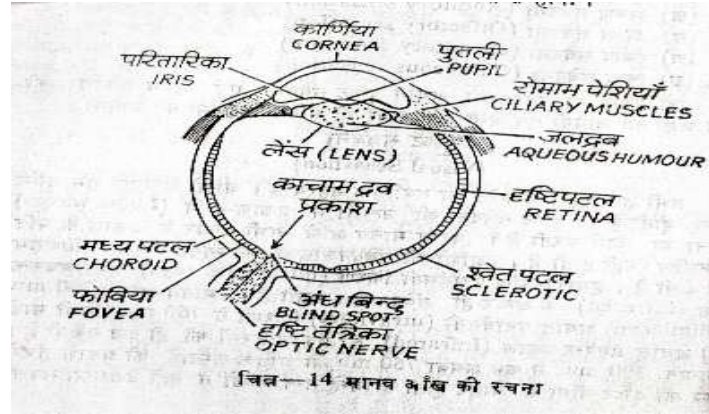 कार्णिया
CORNEA
परितारिका
IRIS
पुतली
PUPIL
रोमाम पेशियाँ
CILIARY MUSCLES
लेंस (LENS)
जलद्रव
AQUEOUS HUMOUR
काचाम द्रव
प्रकाश
दृष्टिपटल
RETINA
मध्य पटल
CHOROID
श्वेत पटल
SCLEROTIC
फोविया
FOVEA
अंध बिन्दु
BLIND SPOT
दृष्टि तंत्रिका
OPTIC NERVE
चित्र—14 मानव आँख की रचना